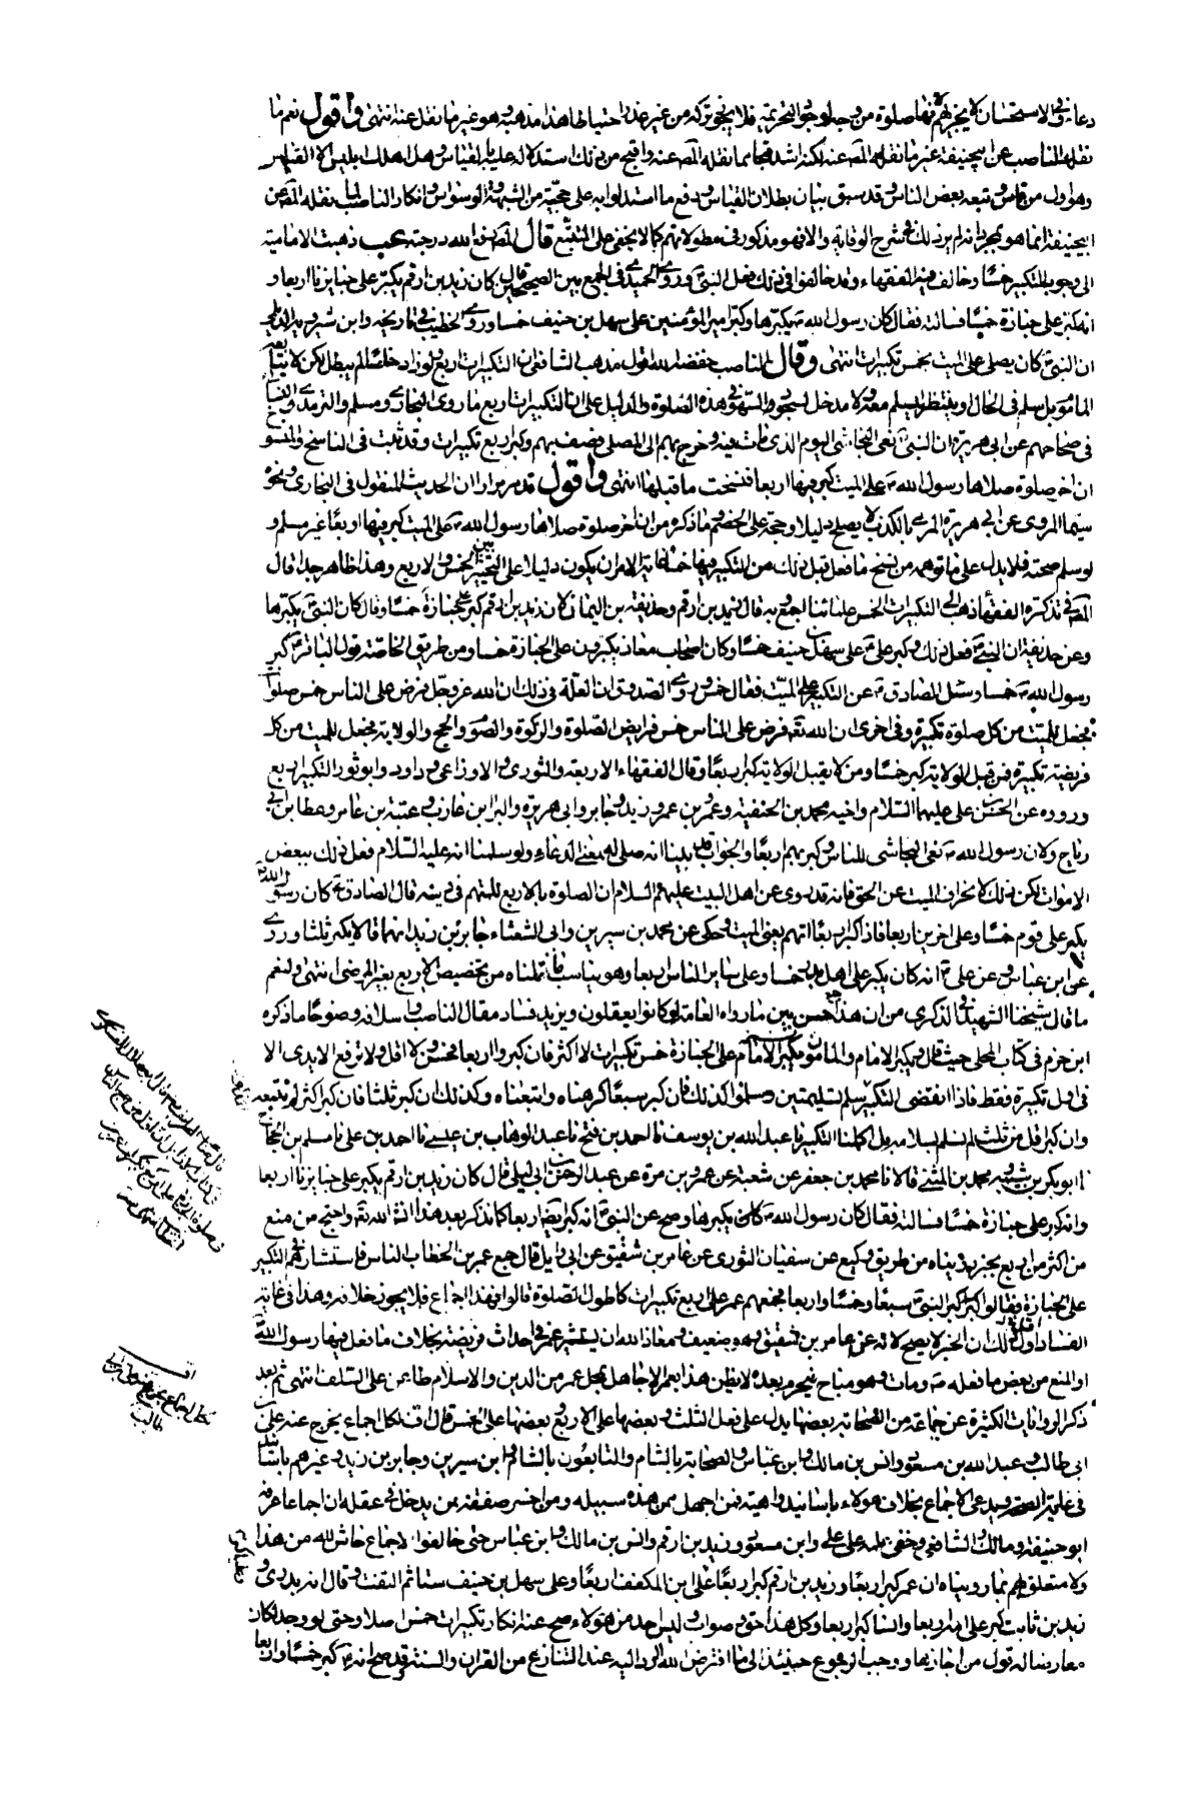 دعاء وفى الاستحسان لا يجزيهم لانها صلوة من وجه لوجود التحريمة فلا يجوز تركه من غير عذر احتياطا هذا مذهبه وهو غير ما نقل عنه انتهى واقول نعم ما
نقله الناصب عن ابيحنيفة غير ما نقله المصـ عنه لكنه اشد قبحا مما نقله المصـ عنه واقبح من ذلك استدلاله عليه بالقياس وهل اهلك ابليس الا القياس
وهو اول من قاس وتبعه بعض الناس وقد سبق بيان بطلان القياس ودفع ما استدلوا به على حجيته من الشبهة والوسواس وانكار الناصب لما نقله المصـ عن
ابيحنيفة انما هو لمجرد انه لم ير ذلك فى شرح الوقاية والا فهو مذكور فى مطولاتهم كما لا يخفى على المتتبع قال المصـ رفع الله درجته يجب ذهبت الامامية
الى وجوب التكبير خمسا وخالف فيه الفقهاء وقد خالفوا فى ذلك فعل النبى ص وروى الحميدى فى الجمع بين الصحيحين قال كان زيد بن ارقم يكبر على جنايزنا اربعا و
انه كبر على جنازة خمسا فسالته فقال كان رسول الله ص يكبرها وكبر امير المؤمنين على سهل بن حنيف خمسا وروى الخطيب فى تاريخه وابن شيرويه الديلمى
ان النبى ص كان يصلى على الميت بخمس تكبيرات انتهى وقال الناصب خفضه الله اقول مذهب الشافعى ان التكبيرات اربع ولو زاد خامسا لم يبطل لكن لا يتابعه
الماموم بل يسلم فى الحال او ينتظر ليسلم معه ولا مدخل لسجود السهو فى هذه الصلوة والدليل على ان التكبيرات اربع ما روى البخارى ومسلم والترمذى والنسائى
فى صحاحهم عن ابى هريرة ان النبى ص نعى النجاشى اليوم الذى مات فيه وخرج بهم الى المصلى فصف بهم وكبر اربع تكبيرات وقد ثبت فى الناسخ والمنسوخ
ان اخر صلوة صلاها رسول الله ص على الميت كبر فيها اربعا فنسخت ما قبلها انتهى واقول قد مر مرارا ان الحديث المنقول فى البخارى ونحوه
سيما المروى عن ابى هريرة المرمى بالكذب لا يصلح دليلا وحجة على الخصم وما ذكره من ان اخر صلوة صلاها رسول الله ص على الميت كبر فيها اربعا غير مسلم و
لو سلم صحته فلا يدل على ما توهمه من نسخ ما فعل قبل ذلك من التكبير فيها خمسا غاية الامر ان يكون دليلا على التخيير بين الخمس والاربع وهذا ظاهر جدا قال
المصـ فى تذكرة الفقهاء ذهب الى التكبيرات الخمس علمائنا اجمع وبه قال زيد بن ارقم وحذيفة بن اليمان لان زيد بن ارقم كبر على جنازة خمسا وقال كان النبى ص يكبرها
وعن حذيفة ان النبى ص فعل ذلك وكبر على ع على سهل بن حنيف خمسا وكان اصحاب معاذ يكبرون على الجنازة خمسا ومن طريق الخاصة قول الباقر ع كبر
رسول الله ص خمسا وسئل الصادق ع عن التكبير على الميت فقال خمس وروى الصدوق ان العلة فى ذلك ان الله عز وجل فرض على الناس خمس صلوات
فجعل للميت من كل صلوة تكبيرة وفى اخرى ان الله تعـ فرض على الناس خمس فرايض الصلوة والزكوة والصوم والحج والولاية فجعل للميت من كل
فريضة تكبيرة فمن قبل الولاية كبر خمسا ومن لا يقبل الولاية كبر اربعا وقال الفقهاء الاربعة والثورى والاوزاعى وداود وابو ثور التكبير اربع
ورووه عن الحسن بن على عليهما السلام واخيه محمد بن الحنفية وعمر وبن عمر وزيد وجابر وابى هريرة والبراء بن عازب وعتبة بن عامر وعطا بن ابى
رباح ولان رسول الله ص نعى النجاشى للناس وكبر بهم اربعا والجواب قد بينا انه صلى له بمعنى الدعاء ولو سلمنا انه عليه السلام فعل ذلك ببعض
الاموات لكن ذلك لانحراف الميت عن الحق فانه قد روى عن اهل البيت عليهم السلام ان الصلوة بالاربع للمتهم فى دينه قال الصادق ع كان رسول الله ص
يكبر على قوم خمسا وعلى اخرين اربعا فاذا كبر اربعا اتهم يعنى الميت وحكى عن محمد بن سيرين وابى الشعثاء جابر بن زيد انهما قالا يكبر ثلثا وروى
عن ابن عباس وعن على ع انه كان يكبر على اهل بدر خمسا وعلى ساير الناس اربعا وهو يناسب ما نقلناه من تخصيص الاربع بغير المرضى انتهى ولنعم
ما قال شيخنا الشهيد فى الذكرى من ان هذا جمع حسن بين ما رواه العامة لو كانوا يعقلون ويزيد فساد مقال الناصب واسلافه وضوحا ما ذكره
ابن حزم فى كتاب المحلى حيث قال ويكبر الامام والمامومون بتكبير الامام على الجنازة خمس تكبيرات لا اكثر فان كبروا اربعا فحسن ولا اقل ولا ترفع الايدى الا
فى اول تكبيرة فقط فاذا انقضى التكبير سلم تسليمتين وسلموا كذلك فان كبر سبعا كرهناه واتبعناه وكذلك ان كبر ثلثا فان كبر اكثر لم نتبعه
وان كبر اقل من ثلث لم نسلم بسلامه بل اكملنا التكبير نا عبد الله بن يوسف نا احمد بن فتح نا عبد الوهاب بن عيسى نا احمد بن على نا مسلم بن الحجاج
نا ابو بكر بن ابى شيبة ومحمد بن المثنى قالا نا محمد بن جعفر عن شعبة عن عمرو بن مرة عن عبد الرحمن بن ابى ليلى قال كان زيد بن ارقم يكبر على جنايزنا اربعا
وانه كبر على جنازة خمسا فسالته فقال كان رسول الله ص يكبرها وصح عن النبى ص انه كبر ايضـ اربعا كما نذكر بعد هذا انشاء الله تعـ واحتج من منع
من اكثر من اربع بخبر رويناه من طريق وكيع عن سفيان الثورى عن عامر بن شقيق عن ابى وايل قال جمع عمر بن الخطاب الناس فاستشارهم فى التكبير
على الجنازة فقالوا كبر النبى ص سبعا وخمسا واربعا فجمعهم عمر على اربع تكبيرات كاطول الصلوة قالوا فهذا اجماع فلا يجوز خلافه وهذا فى غاية
الفساد اول ذلك ان الخبر لا يصح لانه عن عامر بن شقيق وهو ضعيف ومعاذ الله ان يستشير عمر فى احداث فريضة بخلاف ما فعل فيها رسول الله ص
او المنع من بعض ما فعله ص ومات وهو مباح فيحرم بعده لا يظن هذا بعمر الا جاهل بمحل عمر من الدين والاسلام طاعن على السلف انتهى ثم بعد
ذكر الروايات الكثيرة عن جماعة من الصحابة بعضها يدل على فعل الثلث وبعضها على الاربع وبعضها على الخمس قال اف لكل اجماع يخرج عنه على بن
ابى طالب وعبد الله بن مسعود وانس بن مالك وابن عباس والصحابة بالشام والتابعون بالشام وابن سيرين وجابر بن زيد وغيرهم باسانيد
فى غاية الصحة ويدعى الاجماع بخلاف هولاء باسانيد واهية فمن اجهل ممن هذه سبيله ومن اخسر صفقة ممن يدخل فى عقله ان اجماعا عرفه
ابو حنيفة ومالك والشافعى وخفى علمه على على وابن مسعود وزيد بن ارقم وانس بن مالك وابن عباس حتى خالفوا الاجماع حاش لله من هذا
ولا متعلق لهم بما رويناه ان عمر كبر اربعا وزيد بن ارقم كبر اربعا على ابن المكفف اربعا وعلى سهل بن حنيف ستا ثم التفت وقال انه بدرى و
زيد بن ثابت كبر على امه اربعا وانسا كبر اربعا وكل هذا حق وصواب وليس احد من هؤلاء صح عنه انكار تكبيرات خمس اصلا وحتى لو وجد لكان
معارضا له قول من اجازها ووجب الرجوع حينئذ الى ما افترض الله الرد اليه عند التنازع من القران والسنة وقد صح انه ص كبر خمسا واربعا